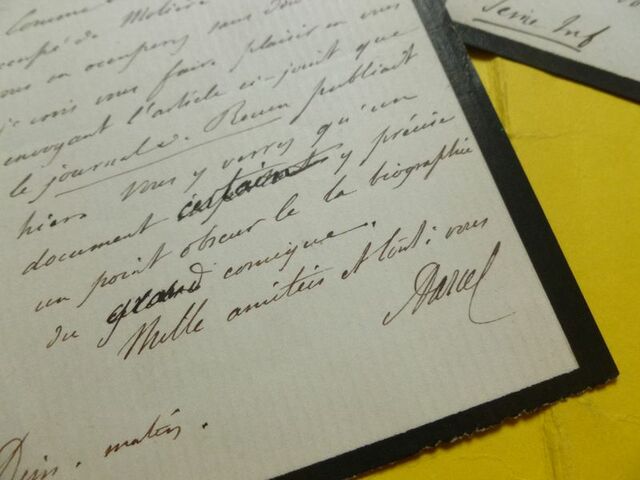 Comme
occupé de Molière
vous en occuperez sans
je vais vous faire plaisir en vous
envoyant l'article ci-joint que
le journal de Rouen publiait
hier. Vous y verrez qu'un
document certain y précise
un point obscur de la biographie
du grand comique.
Mille amitiés et tout à vous
Marcel
matin.
Seine Inf